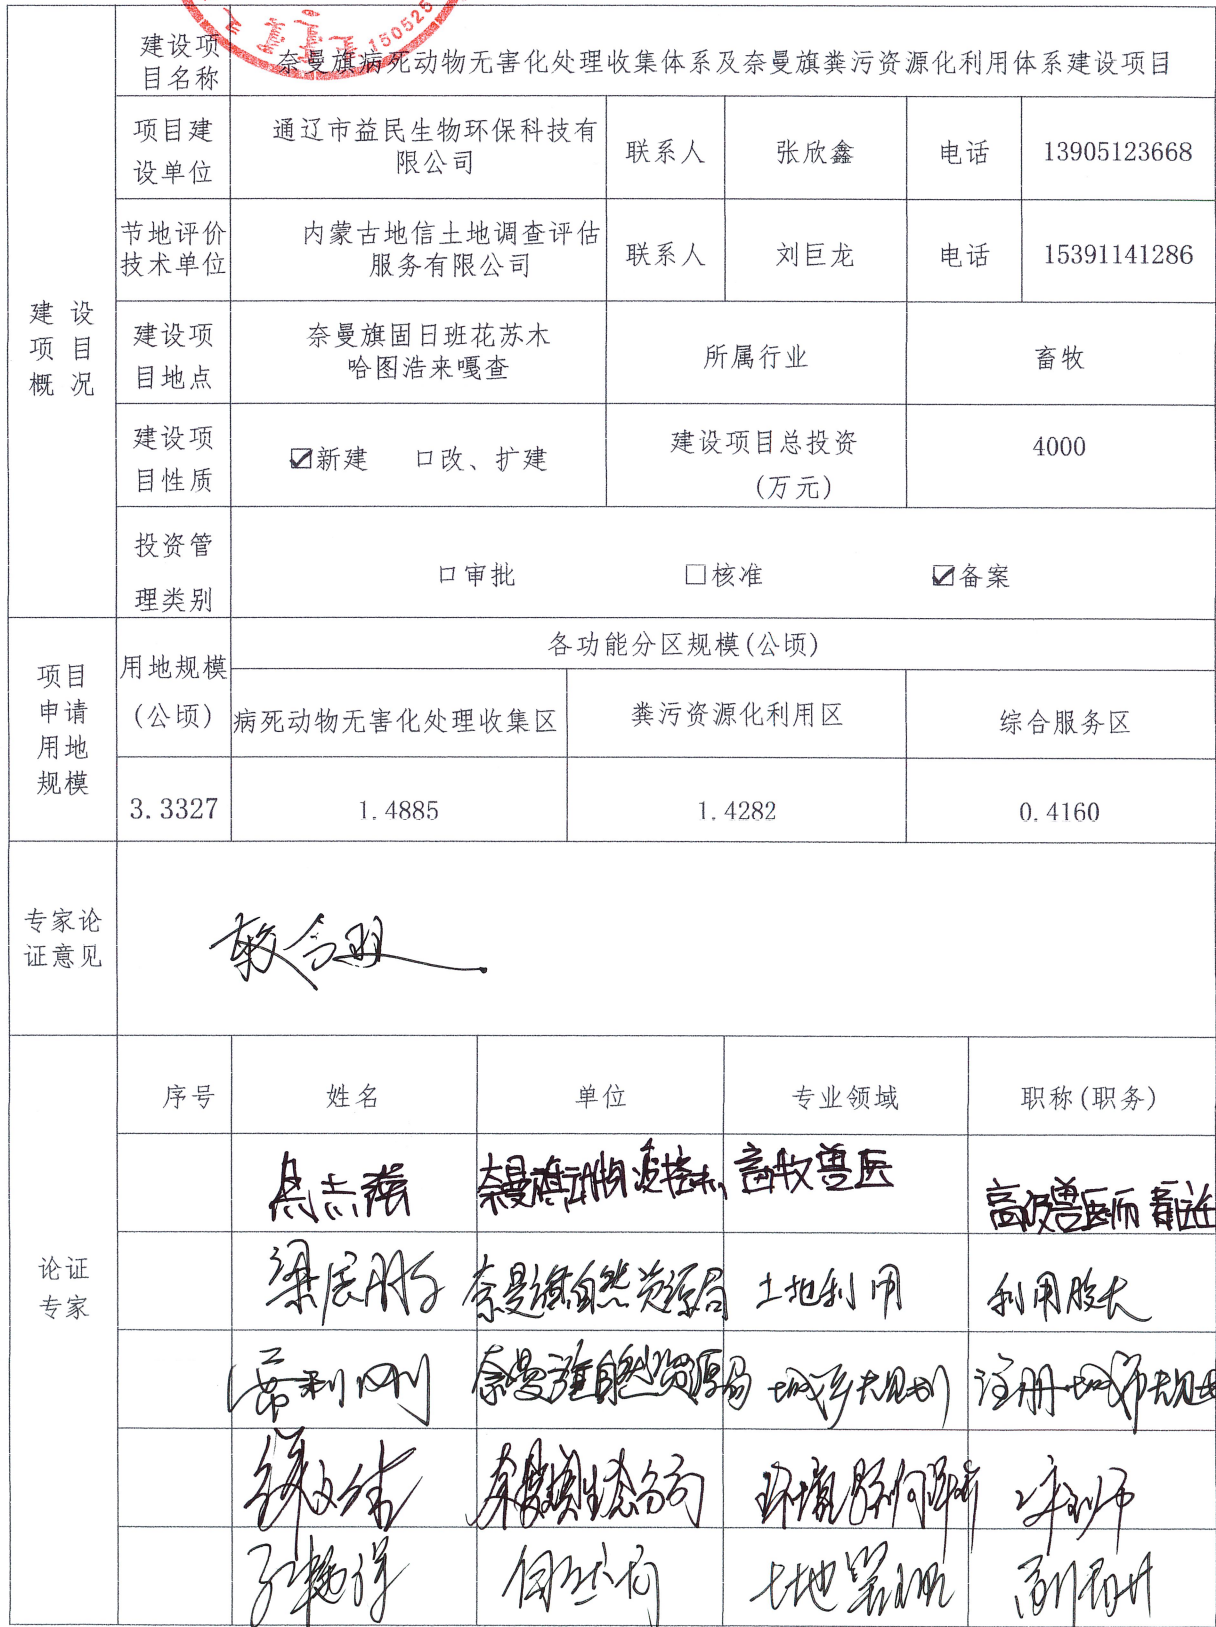 150525
建设项
目名称
奈曼旗病死动物无害化处理收集体系及奈曼旗粪污资源化利用体系建设项目
项目建
设单位
通辽市益民生物环保科技有
限公司
联系人
张欣鑫
电话
13905123668
节地评价
技术单位
内蒙古地信土地调查评估
服务有限公司
联系人
刘巨龙
电话
15391141286
建设
项目
概况
建设项
目地点
奈曼旗固日班花苏木
哈图浩来嘎查
所属行业
畜牧
建设项
目性质
☑新建 口改、扩建
建设项目总投资
(万元)
4000
投资管
理类别
口审批 □核准 ☑备案
项目
申请
用地
规模
用地规模
(公顷)
各功能分区规模(公顷)
病死动物无害化处理收集区
粪污资源化利用区
综合服务区
3.3327
1.4885
1.4282
0.4160
专家论
证意见
较合理
论证
专家
序号
姓名
单位
专业领域
职称(职务)
畜牧兽医
高级兽医师
奈曼旗自然资源局
土地利用
利用股长
奈曼旗自然资源局
城乡规划
注册城市规划